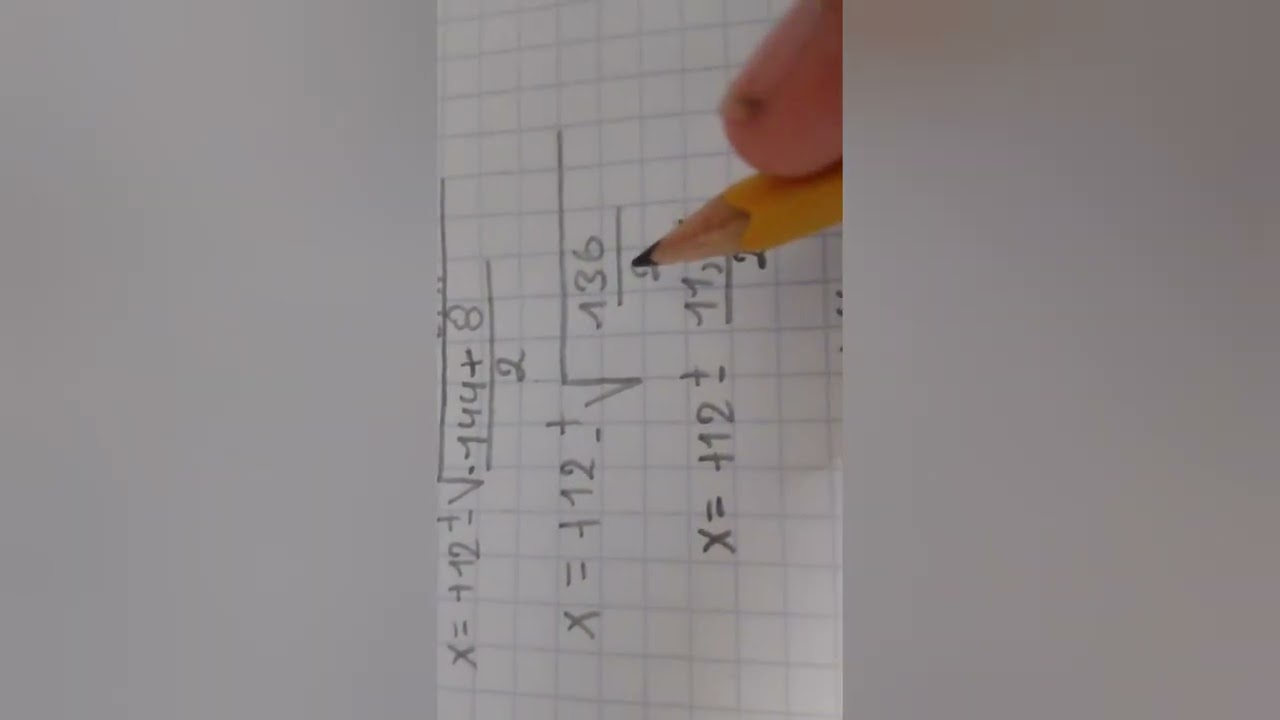 x = +12 ± √144+8
2
x = +12 ± √136
2
x = +12 ± 11,
2